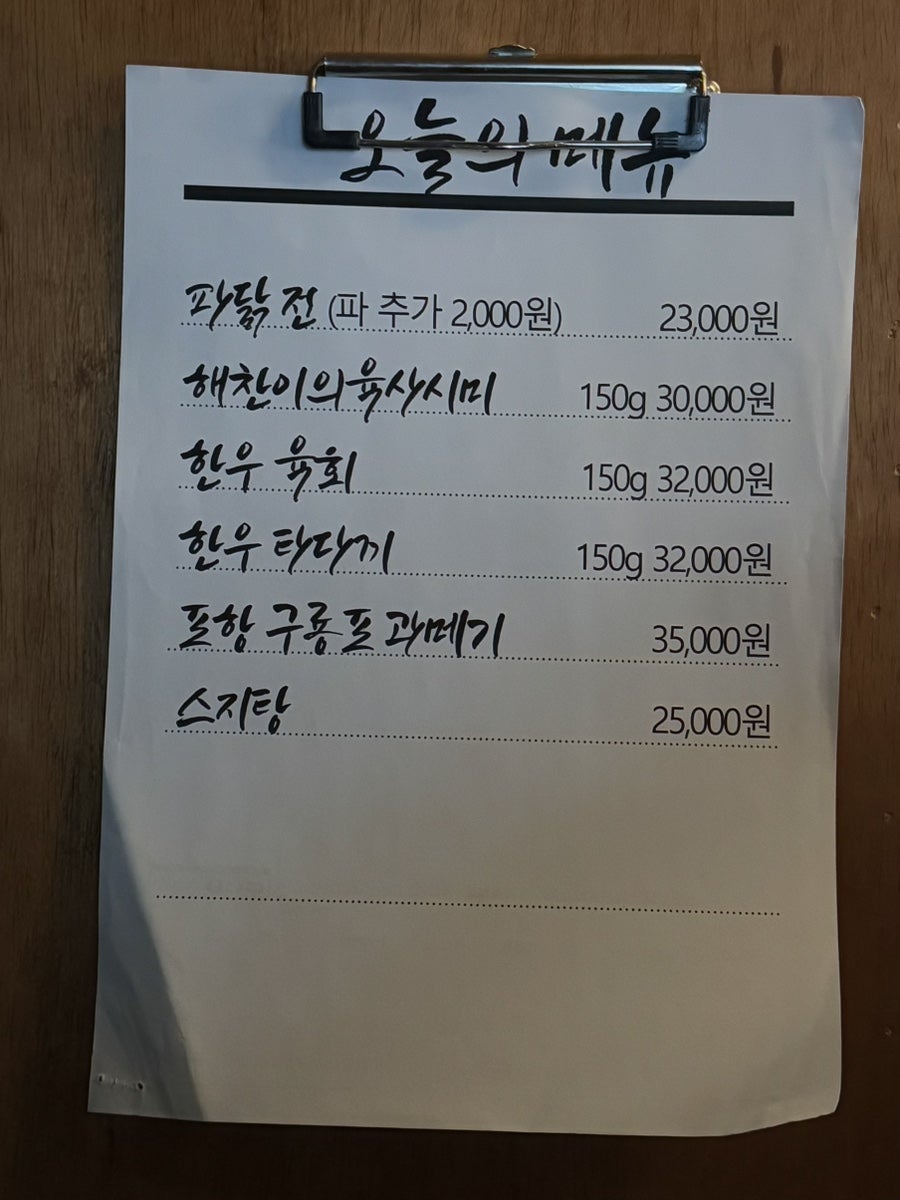 오늘의 메뉴
파닭 전 (파 추가 2,000원) 23,000원
해찬이의 육사시미 150g 30,000원
한우 육회 150g 32,000원
한우 타다끼 150g 32,000원
포항 구룡포 과메기 35,000원
스지탕 25,000원